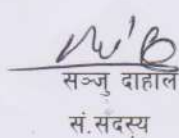 सञ्जु दाहाल
सं.सदस्य